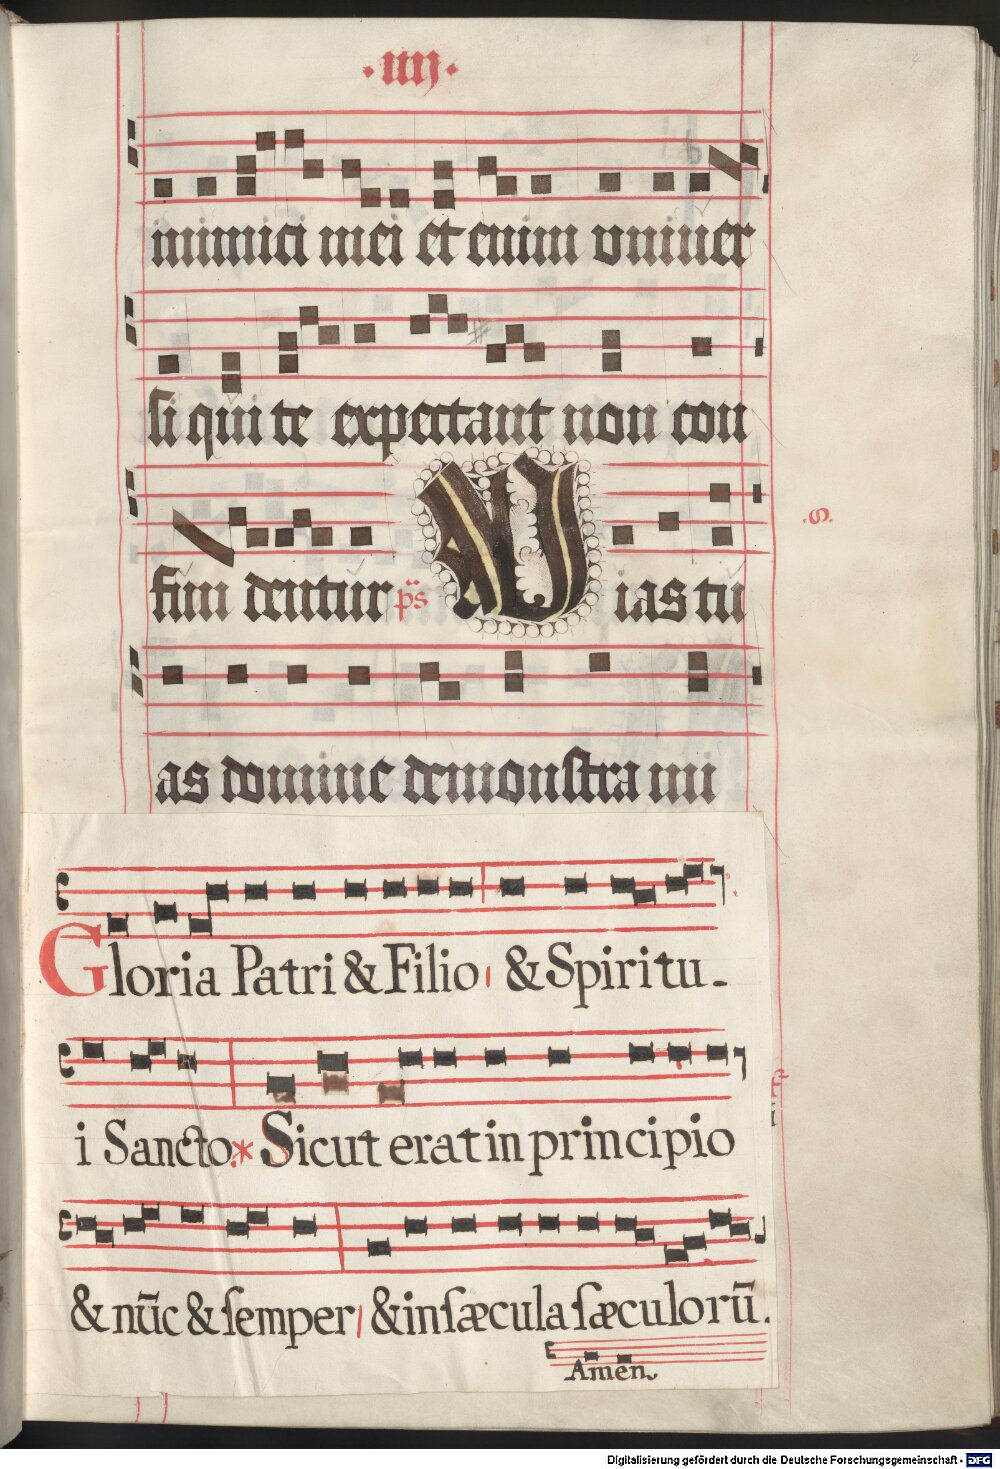 ·iiij·
inimici mei et enim vniuer
si qui te expectant non con
fun dentur ps Vias tu
as domine demonstra mi
Gloria Patri & Filio & Spiritu.
i Sancto * Sicut erat in principio
& nūc & ſemper & in ſæcula ſæculorū.
Amen.
Digitalisierung gefördert durch die Deutsche Forschungsgemeinschaft - DFG